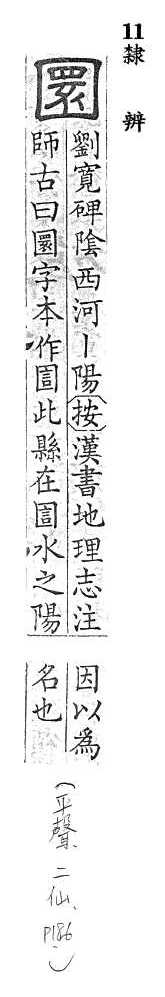 11 隸辨
圜
劉寬碑陰西河丨陽按漢書地理志注
師古曰圜字本作圁此縣在圁水之陽
因以為
名也
(平聲、二仙、P186)